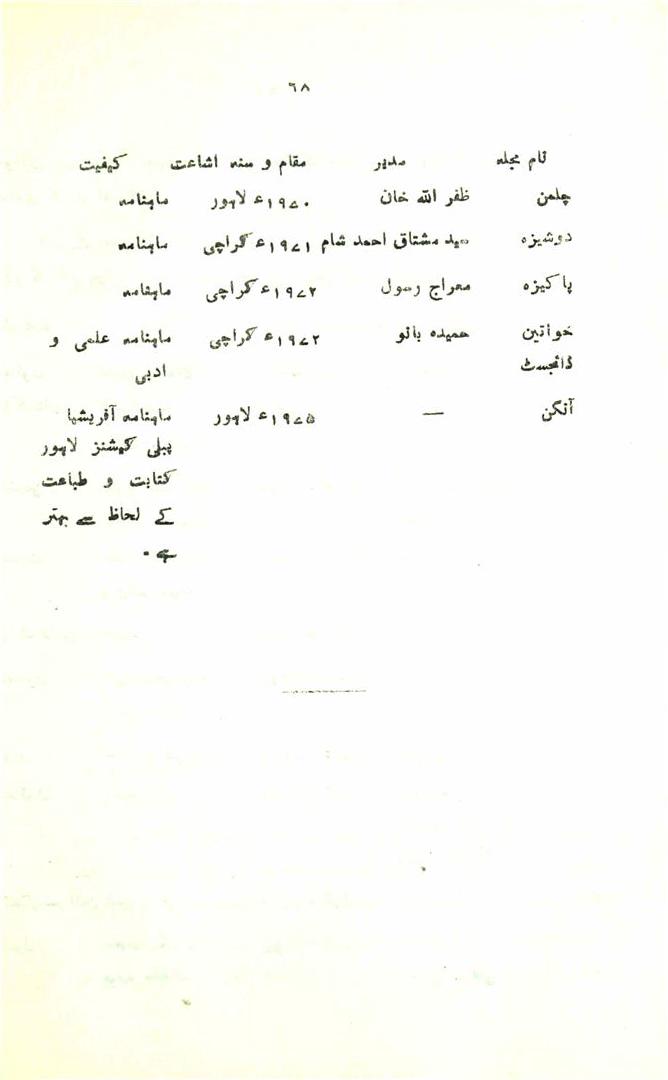 ٦٨
نام مجلہ مدیر مقام و سنہ اشاعت کیفیت
چلمن ظفر اللہ خان ۱۹۷۰ء لاہور ماہنامہ
دوشیزہ سید مشتاق احمد شام ۱۹۷۱ء کراچی ماہنامہ
پاکیزہ معراج رسول ۱۹۷۲ء کراچی ماہنامہ
خواتین حمیدہ بانو ۱۹۷۲ء کراچی ماہنامہ علمی و
ڈائجسٹ ادبی
آنگن — ۱۹۷۵ء لاہور ماہنامہ آفریشیا
پبلی کیشنز لاہور
کتابت و طباعت
کے لحاظ سے بہتر
ہے۔